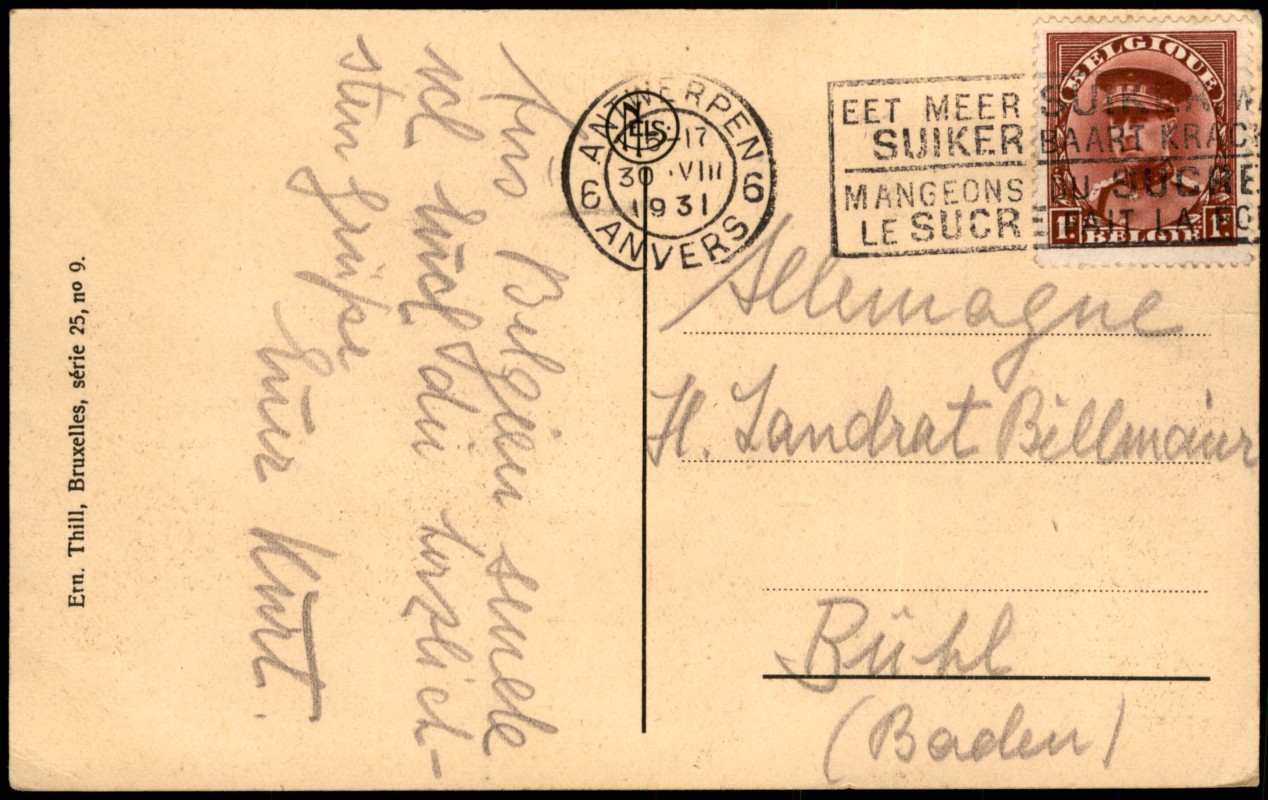 Aus Belgien sende
ich Euch die herzlich-
sten Grüße
Euer Kurt.
Ern. Thill, Bruxelles, série 25, nº 9.
NELS
ANTWERPEN
15-17
30 VIII
1931
6 6
ANVERS
EET MEER SUIKER
SUIKER BAART KRACH
MANGEONS DU SUCRE
LE SUCRE FAIT LA FO
BELGIQUE
1F. 1F.
BELGIË
Allemagne
H. Landrat Billmaier
Bühl
(Baden)